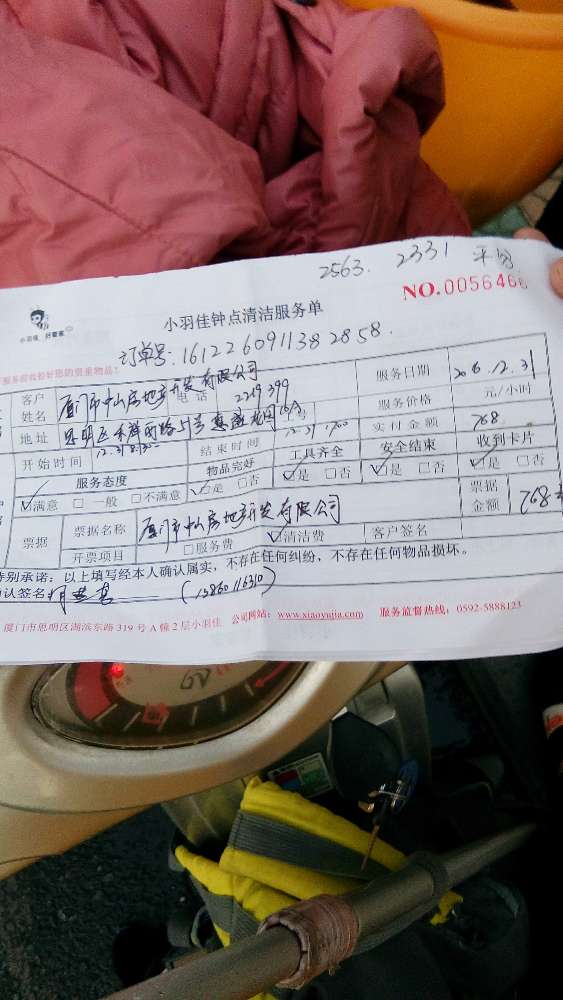 2563. 2331
NO.005646
小羽佳 好管家
小羽佳钟点清洁服务单
订单号:1612260911382858.
服务前收拾好您的贵重物品!
客户姓名 厦门市中山房地产开发有限公司 电话 2219399 服务日期 2016.12.31
地址 思明区禾祥西路 服务价格 元/小时
开始时间 12.31 8:00 结束时间 12.31 17:00 实付金额 768
服务态度 物品完好 工具齐全 安全结束 收到卡片
☑满意 □一般 □不满意 ☑是 □否 ☑是 □否 ☑是 □否 ☑是 □否
票据 票据名称 厦门市中山房地产开发有限公司 票据金额 768
开票项目 □服务费 ☑清洁费 客户签名
特别承诺:以上填写经本人确认属实,不存在任何纠纷,不存在任何物品损坏.
确认签名 (13860116310)
厦门市思明区湖滨东路319号A幢2层小羽佳 公司网站:www.xiaoyujia.com 服务监督热线:0592-5888123